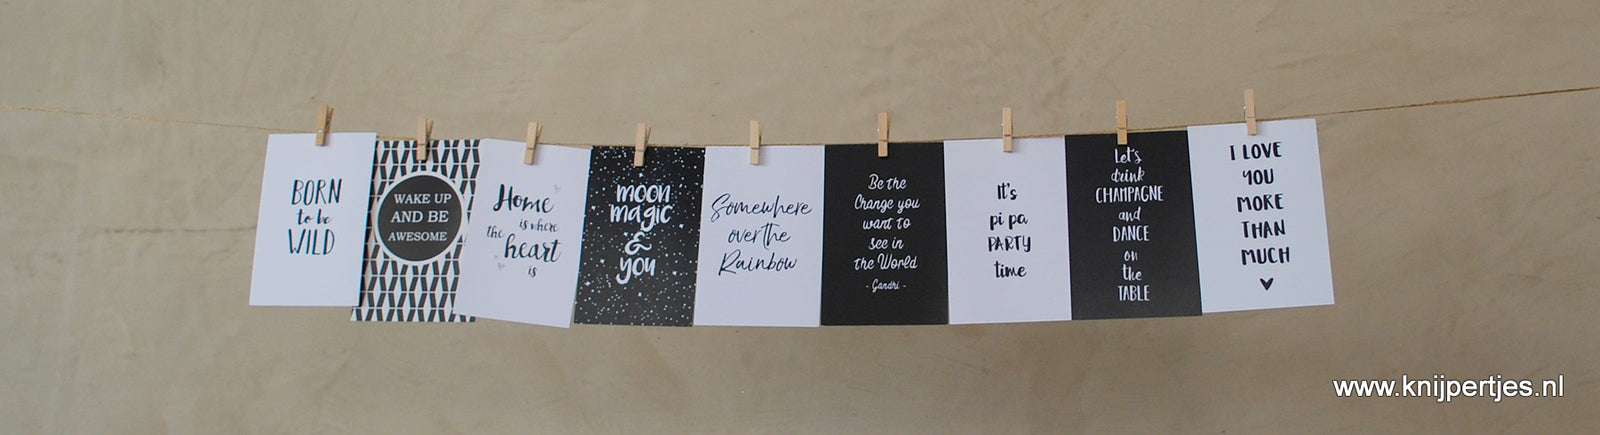 BORN
to be
WILD
WAKE UP
AND BE
AWESOME
Home
is where
the heart
is
moon
magic
&
you
Somewhere
over the
Rainbow
Be the
Change you
want to
see in
the World
- Gandhi -
It's
pi pa
PARTY
time
Let's
drink
CHAMPAGNE
and
DANCE
on
the
TABLE
I LOVE
YOU
MORE
THAN
MUCH
www.knijpertjes.nl